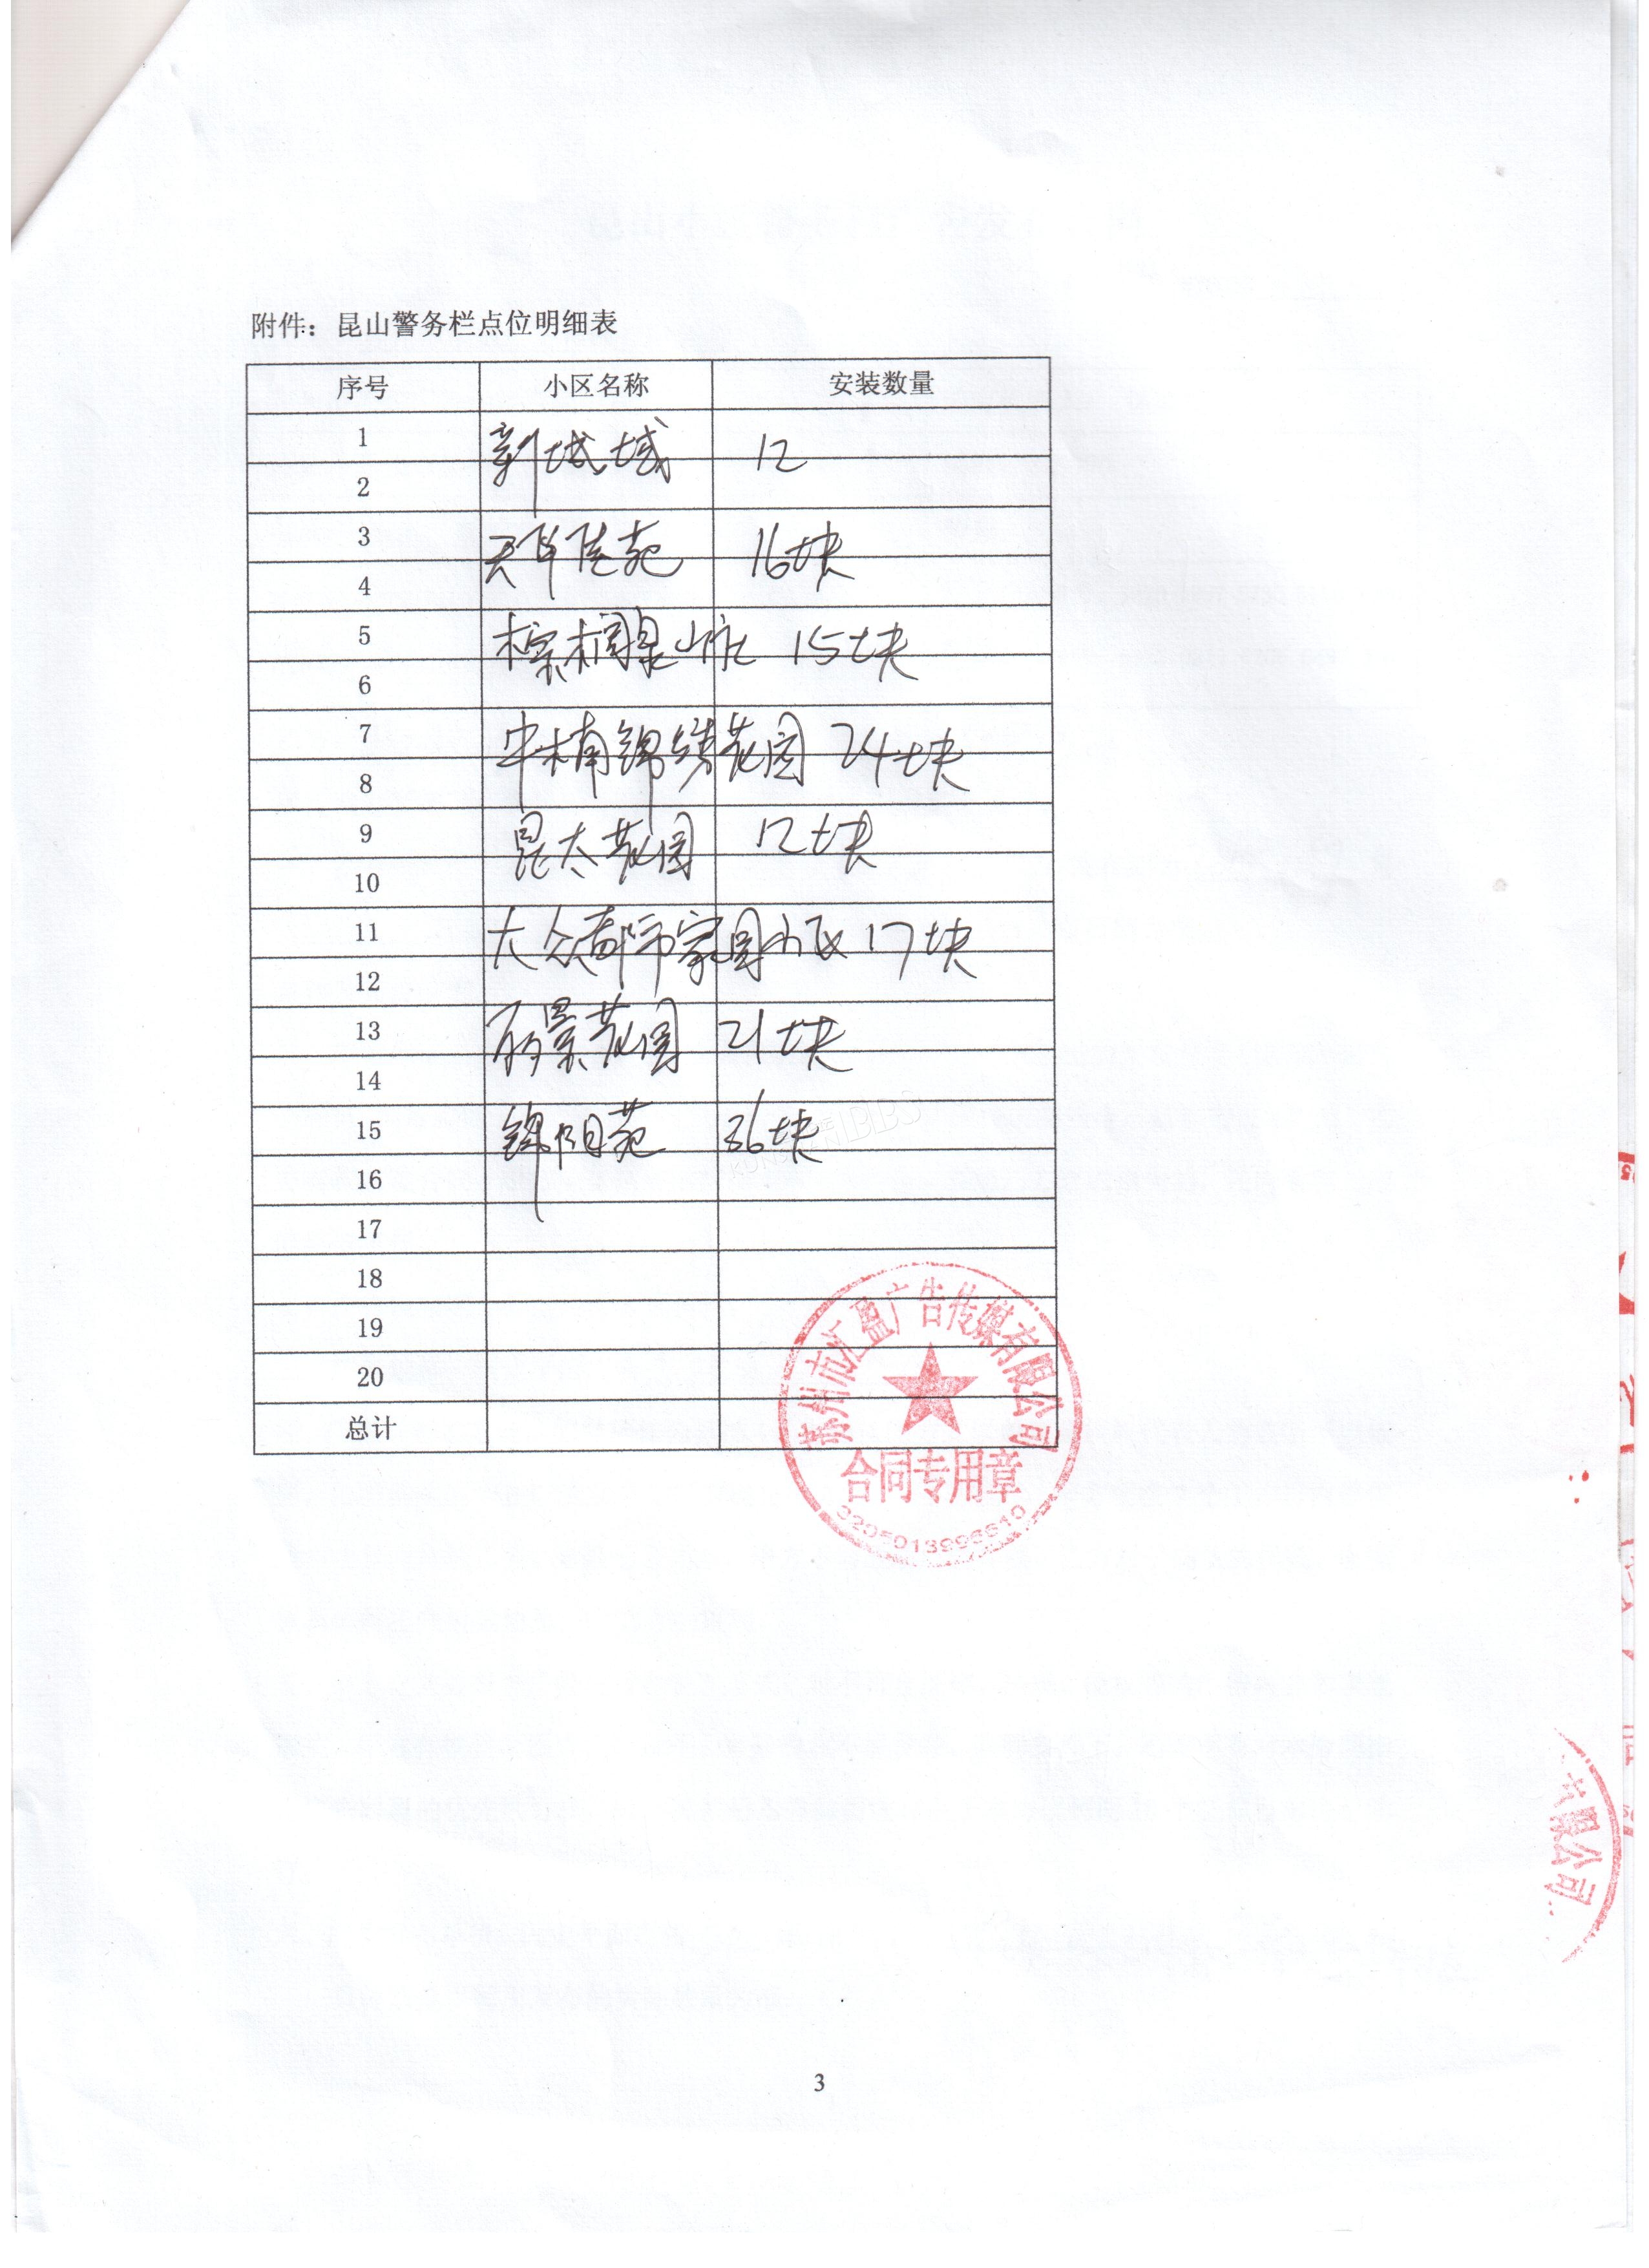 附件：昆山警务栏点位明细表
序号 小区名称 安装数量
1 新城域 12
2
3 天华佳苑 16块
4
5 棕榈昆山 15块
6
7 中楠锦绣花园 24块
8
9 昆太花园 12块
10
11 大众都市家园小区 17块
12
13 丽景花园 21块
14
15 锦阳苑 36块
16
17
18
19
20
总计
苏州市汇盈广告传媒有限公司
合同专用章
限公司
3